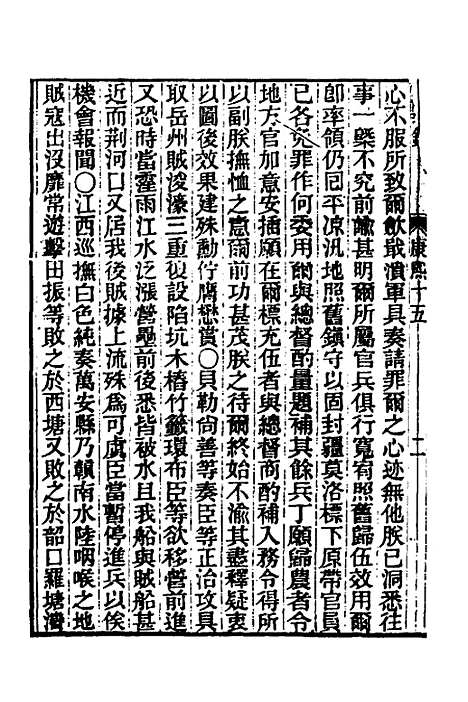 康熙十五
二
心不服所致爾飲戢潰軍具奏請罪爾之心迹無他朕已洞悉往
事一槩不究前諭甚明爾所屬官兵俱行寬宥照舊歸伍效用爾
卽率領仍囘平凉汛地照舊鎮守以固封疆莫洛標下原帶官員
已各免罪作何委用爾與總督酌量題補其餘兵丁願歸農者令
地方官加意安插願在爾標充伍者與總督商酌補入務令得所
以副朕撫恤之意爾前功甚茂朕之待爾終始不渝其盡釋疑衷
以圖後效果建殊勳佇膺懋賞〇貝勒尙善等奏臣等正治攻具
取岳州賊浚濠三重復設陷坑木樁竹籤環布臣等欲移營前進
又恐時當霪雨江水泛漲營壘前後悉皆被水且我船與賊船甚
近而荆河口又居我後賊據上流殊爲可虞臣當暫停進兵以俟
機會報聞〇江西巡撫白色純奏萬安縣乃贛南水陸咽喉之地
賊寇出沒靡常遊擊田振等敗之於西塘又敗之於韶口羅塘灣